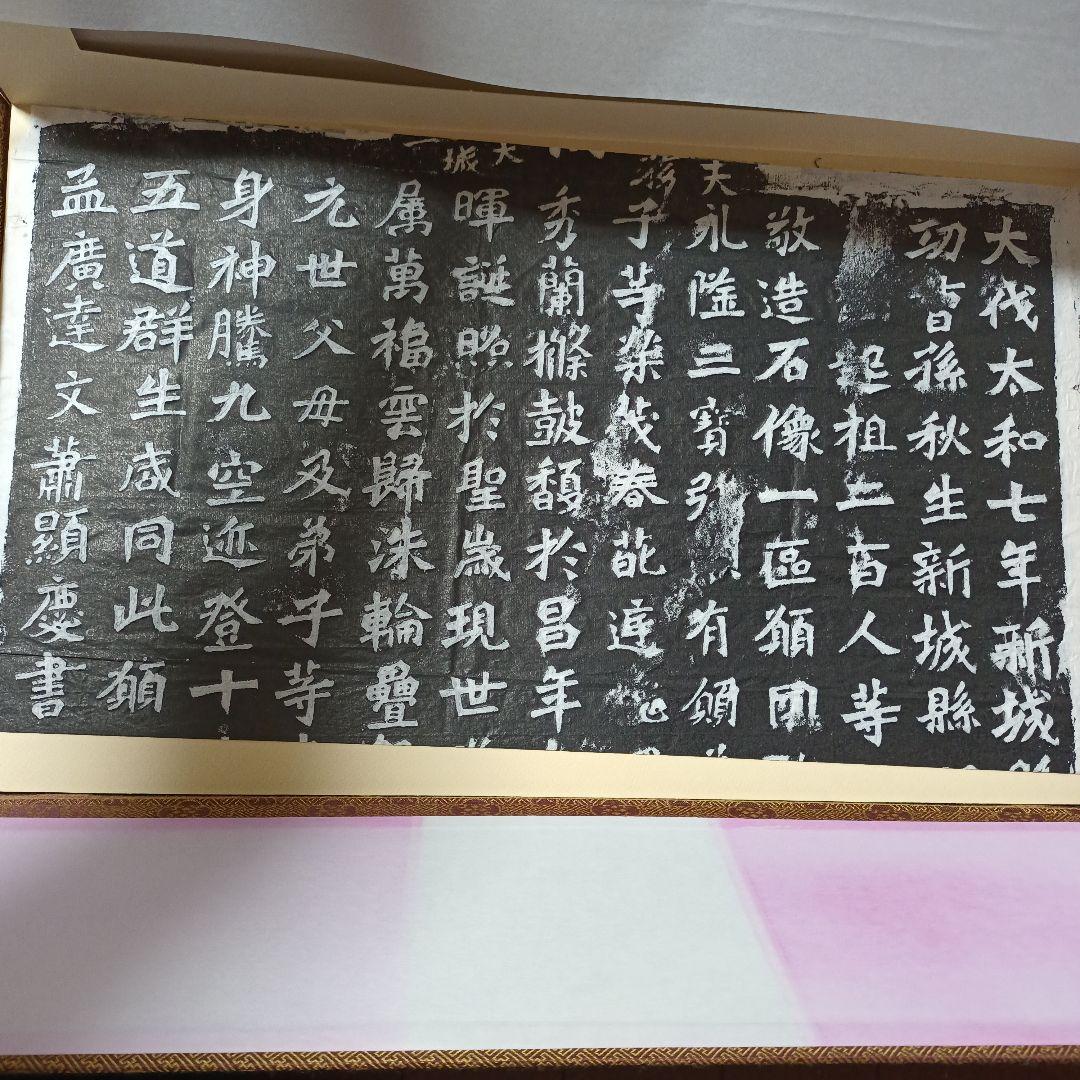 大伐太和七年新城
功曹孫秋生新城縣
起祖二百人等
敬造石像一區願國
夫永隆三寶弥顯有願
子等榮茂春葩庭
秀蘭條鼓馥於昌年
大城一
暉誕照於聖歲現世
属萬福雲歸洙輪疊
元世父母及弟子等
身神騰九空迹登十
五道群生咸同此願
孟廣達文蕭顯慶書